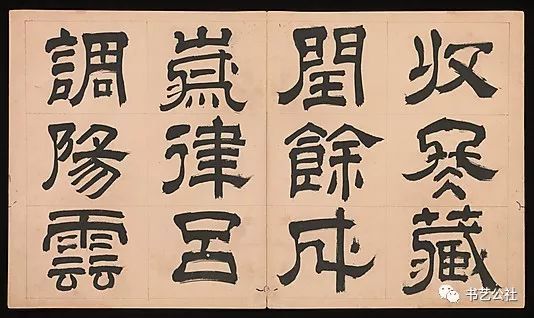 收冬藏
閏餘成
歲律呂
調陽雲
书艺公社